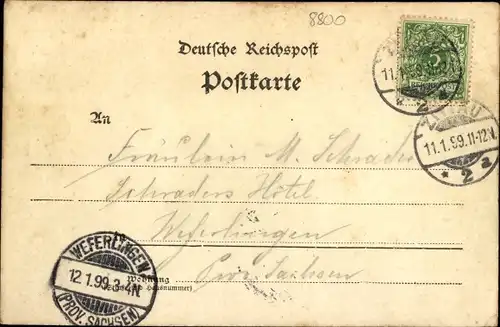 8800
Deutsche Reichspost
Postkarte
5
11.1.99.11-12V.
* 2 a
An
Fräulein M. Schrader
Schraders Hotel
Weferlingen
Prov. Sachsen
WEFERLINGEN
12 1.99. 2-3N
(PROV. SACHSEN)
Wohnung
(Straße und Hausnummer)